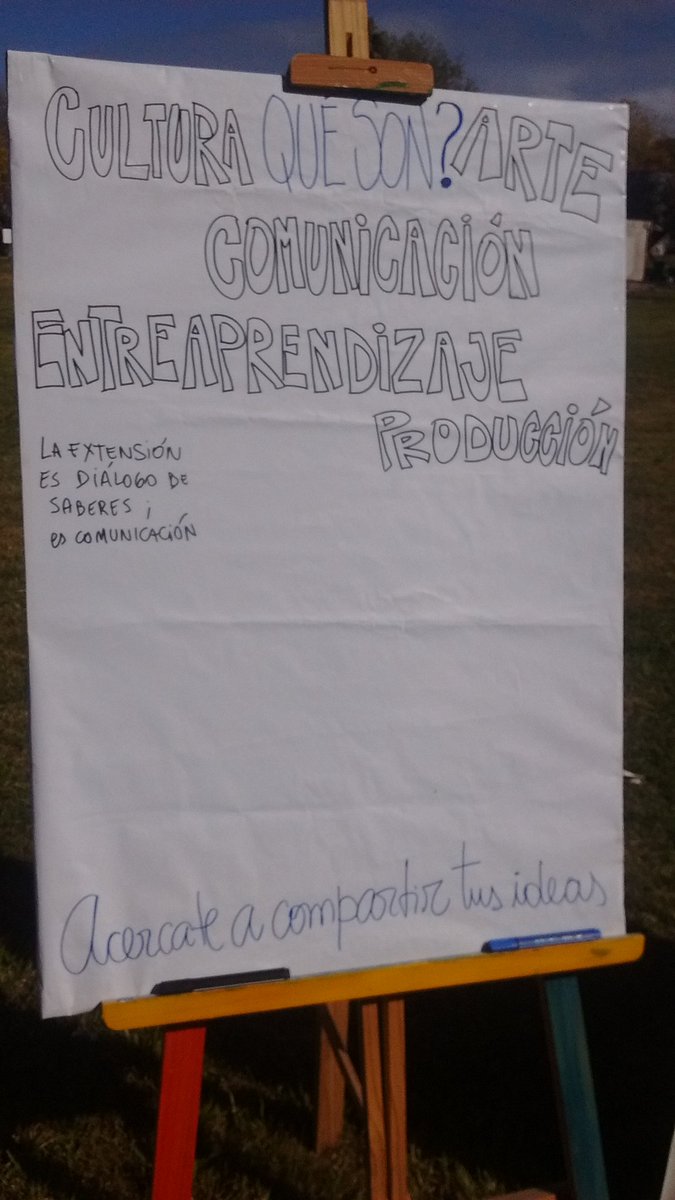 CULTURA QUE SON? ARTE
COMUNiCACIÓN
ENTREAPRENDIZAJE
PRODUCCIÓN
LA EXTENSIÓN
ES DIÁLOGO DE
SABERES ;
es COMUNICACIÓN
Acercate a compartir tus ideas